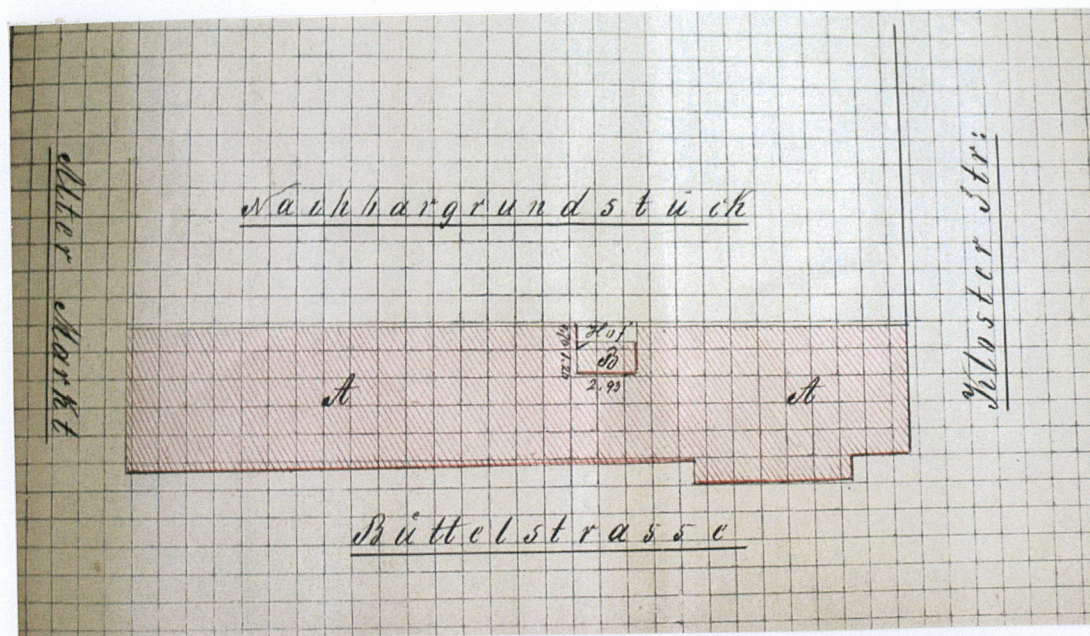 Alter Markt
Nachbargrundstück
Kloster Str:
Hof
B
1.20
2,93
A
A
Büttelstrasse